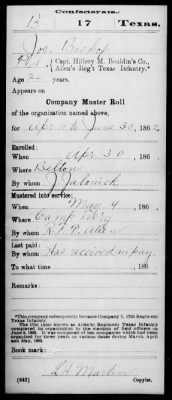 Confederate.
B 17 Texas.
Jos. Bishop
Pvt, Capt. Hillery M. Bouldin's Co.,
Allen's Reg't Texas Infantry.*
Age years.
Appears on
Company Muster Roll
of the organization named above,
for Apr 11 to June 30, 1862.
Enrolled:
When Apr 30, 186
Where Belton
By whom
Mustered into service:
When May 9, 186
Where Camp Terry
By whom R. T. P. Allen
Last paid:
By whom Has received no pay
To what time , 186
Remarks:
*This company subsequently became Company I, 17th Regiment Texas Infantry
The 17th (also known as Allen's) Regiment, Texas Infantry
completed its organization by the election of field officers on
June 9, 1862. It was composed of ten companies which had been
organized for twelve years on various dates during March, April
and May, 1862.
Book mark:
Martin
(642) Copyist.